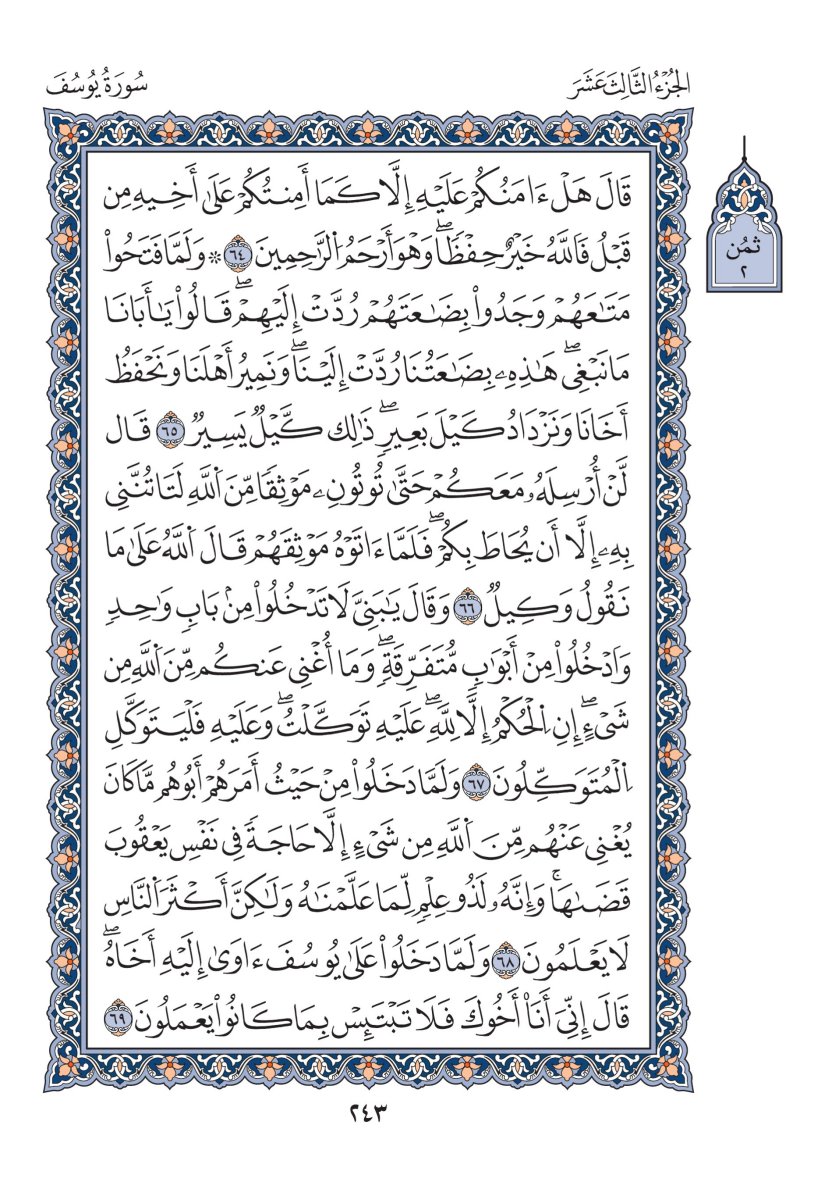 الجُزْءُ الثَّالِثَ عَشَرَ
سُورَةُ يُوسُفَ
قَالَ هَلْ ءَامَنُكُمْ عَلَيْهِ إِلَّا كَمَا أَمِنتُكُمْ عَلَىٰ أَخِيهِ مِن
قَبْلُ فَاللَّهُ خَيْرٌ حِفْظًاۖ وَهْوَ أَرْحَمُ الرَّٰحِمِينَ ٦٤ ۞ وَلَمَّا فَتَحُواْ
مَتَٰعَهُمْ وَجَدُواْ بِضَٰعَتَهُمْ رُدَّتْ إِلَيْهِمْۖ قَالُواْ يَٰأَبَانَا
مَا نَبْغِىۖ هَٰذِهِۦ بِضَٰعَتُنَا رُدَّتْ إِلَيْنَاۖ وَنَمِيرُ أَهْلَنَا وَنَحْفَظُ
أَخَانَا وَنَزْدَادُ كَيْلَ بَعِيرٍۖ ذَٰلِك كَّيْلٌ يَسِيرٌ ٦٥ قَال
لَّنْ أُرْسِلَهُۥ مَعَكُمْ حَتَّىٰ تُوتُونِۦ مَوْثِقًا مِّنَ اَللَّهِ لَتَاتُنَّنِى
بِهِۦ إِلَّا أَن يُحَاطَ بِكُمْۖ فَلَمَّا ءَاتَوْهُ مَوْثِقَهُمْ قَالَ اَللَّهُ عَلَىٰ مَا
نَقُولُ وَكِيلٌ ٦٦ وَقَالَ يَٰبَنِىَّ لَا تَدْخُلُواْ مِنۢ بَابٍ وَٰحِدٍ
وَادْخُلُواْ مِنْ أَبْوَٰبٍ مُّتَفَرِّقَةٍۖ وَمَا أُغْنِى عَنكُم مِّنَ اَللَّهِ مِن
شَىْءٍۖ إِنِ اِلْحُكْمُ إِلَّا لِلَّهِۖ عَلَيْهِ تَوَكَّلْتُۖ وَعَلَيْهِ فَلْيَتَوَكَّلِ
اِلْمُتَوَكِّلُونَ ٦٧ وَلَمَّا دَخَلُواْ مِنْ حَيْثُ أَمَرَهُمْ أَبُوهُم مَّا كَانَ
يُغْنِى عَنْهُم مِّنَ اَللَّهِ مِن شَىْءٍ إِلَّا حَاجَةً فِى نَفْسِ يَعْقُوبَ
قَضَىٰهَاۚ وَإِنَّهُۥ لَذُو عِلْمٍ لِّمَا عَلَّمْنَٰهُ وَلَٰكِنَّ أَكْثَرَ اَلنَّاسِ
لَا يَعْلَمُونَ ٦٨ وَلَمَّا دَخَلُواْ عَلَىٰ يُوسُفَ ءَاوَىٰ إِلَيْهِ أَخَاهُۖ
قَالَ إِنِّىَ أَنَا۠ أَخُوكَ فَلَا تَبْتَئِسْ بِمَا كَانُواْ يَعْمَلُونَ ٦٩
ثُمُن
٢
٢٤٣